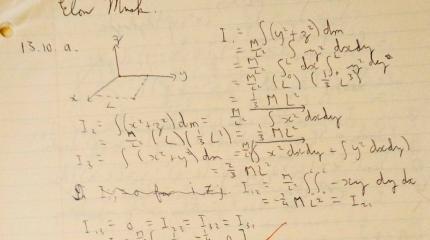 Elon Musk.
13.10. a.
z
y
x
L
I₁ = ∫(y²+z²) dm
= M/L² ∫∫ y² dx dy
= M/L² ∫₀ᴸ dx ∫₀ᴸ y² dy
= M/L² (L) (1/3 L³)
= 1/3 ML²
I₂ = ∫(x²+z²) dm = M/L² ∫∫ x² dx dy
= M/L² (L)(1/3 L³) = 1/3 ML²
I₃ = ∫(x²+y²) dm = M/L² (∫∫ x² dx dy + ∫∫ y² dx dy)
= 2/3 ML²
I₁₂ = M/L² ∫∫ -xy dy dx
= -1/4 ML² = I₂₁
I₁₃ = 0 = I₂₃ = I₃₂ = I₃₁